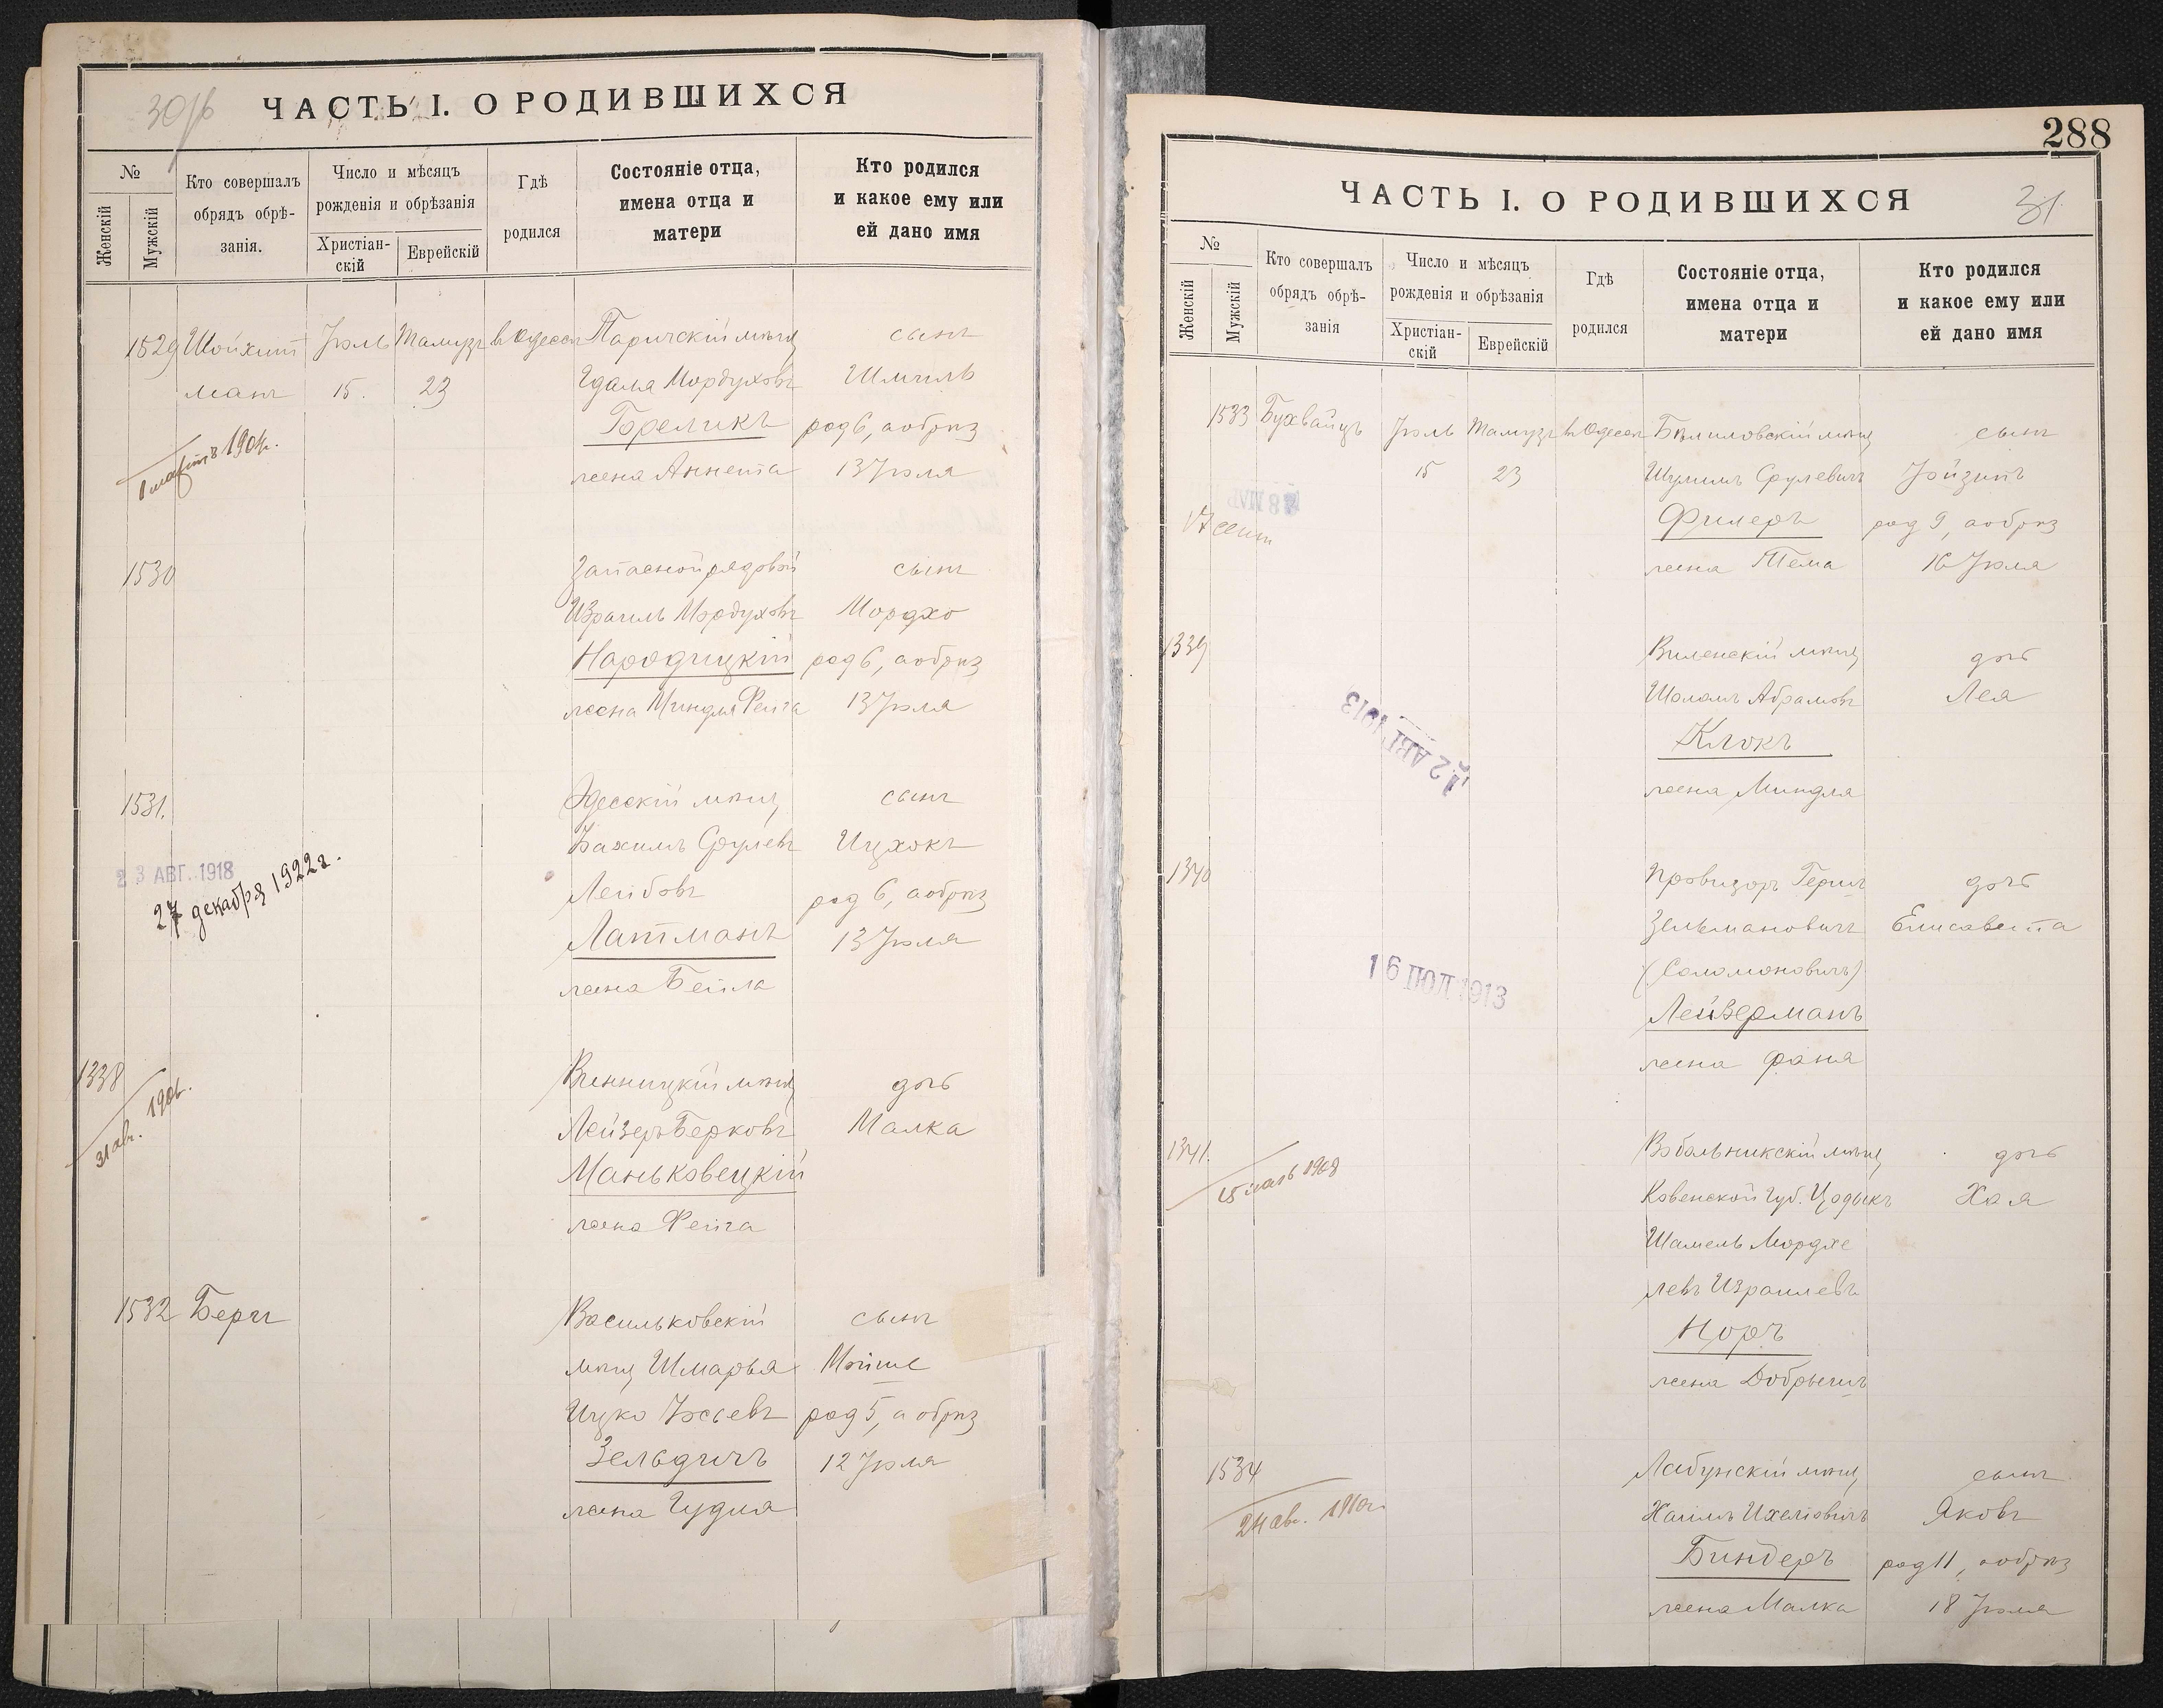 30/б
ЧАСТЬ I. О РОДИВШИХСЯ
№
Женскій
Мужскій
Кто совершалъ
обрядъ обрѣ-
занія.
Число и мѣсяцъ
рожденія и обрѣзанія
Христіан-
скій
Еврейскій
Гдѣ
родился
Состояніе отца,
имена отца и
матери
Кто родился
и какое ему или
ей дано имя
1529 Шойхит Іюль Тамузъ въ Одессѣ Паричскій мѣщ сынъ
манъ 15. 23 Гдаля Мордуховъ Шмиль
Гореликъ род 6, а обрѣз
жена Аннета 13 Іюля
1904г.
1530 Запасной рядовой сынъ
Израиль Мордуховъ Мордхо
Народицкій род 6, а обрѣз
жена Миндля Фейга 13 Іюля
1531. Одесскій мѣщ сынъ
Срулевъ Ицхокъ
23 АВГ. 1918
27 декабря 1922г.
Лейбовъ род 6, а обрѣз
Латманъ 13 Іюля
жена Бейла
1338 Винницкій мѣщ дочь
31 авг. 190
Лейзеръ Берковъ Малка
Маньковецкій
жена Фейга
1532 Бергъ Васильковскій сынъ
мѣщ Шмарья Мойше
Ицко Іосьевъ род 5, а обрѣз
Зельдичъ 12 Іюля
жена Гудля
288
ЧАСТЬ I. О РОДИВШИХСЯ
31.
№
Женскій
Мужскій
Кто совершалъ
обрядъ обрѣ-
занія
Число и мѣсяцъ
рожденія и обрѣзанія
Христіан-
скій
Еврейскій
Гдѣ
родился
Состояніе отца,
имена отца и
матери
Кто родился
и какое ему или
ей дано имя
1533 Бухвайцъ Іюль Тамузъ въ Одессѣ мѣщ сынъ
15 23 Шулимъ Срулевичъ Іойзипъ
17 сент
Филеръ род 9, а обрѣз
жена Тема 16 Іюля
1339 Виленскій мѣщ дочь
Шоломъ Абрамовъ Лея
12 АВГ 1913
Клокъ
жена Миндля
1340 Провизоръ Герш дочь
Зельмановичъ Елисавета
(Соломоновичъ)
16 1913
Лейзерманъ
жена Фаня
1341. Вобольникскій мѣщ дочь
1908
Ковенской губ. Цодыкъ Хая
Шамель Мордхе
левъ Израилевъ
Норъ
жена
1534 Лабунскій мѣщ сынъ
24 авг. 1910г.
Хаимъ Ихеліовичъ Яковъ
Биндеръ род 11, а обрѣз
жена Малка 18 Іюля